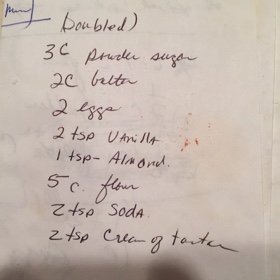 Doubled)
3C powder sugar
2C butter
2 eggs
2 tsp Vanilla
1 tsp- Almond.
5 c. flour
2 tsp SODA.
2 tsp Cream of tartar